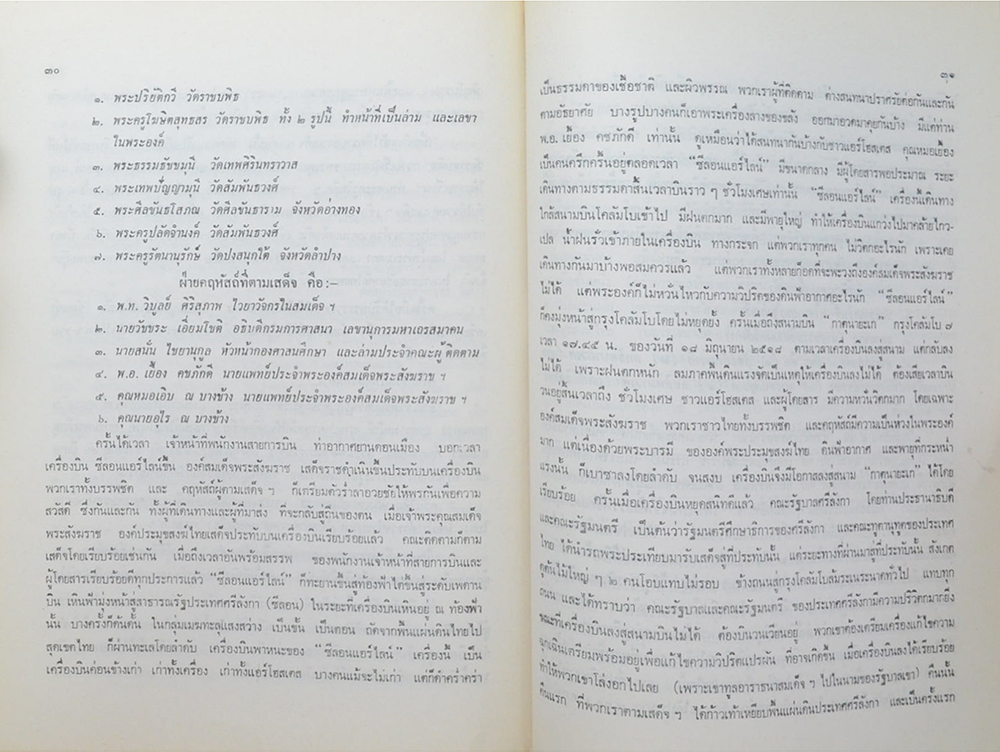 ๓๐
๑. พระปริยัติกวี วัดราชบพิธ
๒. พระครูโฆษิตสุทธสร วัดราชบพิธ ทั้ง ๒ รูปนี้ ทำหน้าที่เป็นล่าม และเลขา
ในพระองค์
๓. พระธรรมธัชมุนี วัดเทพศิรินทราวาส
๔. พระเทพปัญญามุนี วัดสัมพันธวงศ์
๕. พระศีลขันธโสภณ วัดศีลขันธาราม จังหวัดอ่างทอง
๖. พระครูปลัดจำนงค์ วัดสัมพันธวงศ์
๗. พระครูรัตนานุรักษ์ วัดปงสนุกใต้ จังหวัดลำปาง
ฝ่ายคฤหัสถ์ที่ตามเสด็จ คือ:–
๑. พ.ท. วิบูลย์ ศิริสุภาพ ไวยาวัจกรในสมเด็จ ฯ
๒. นายวัชระ เอี่ยมโชติ อธิบดีกรมการศาสนา เลขานุการมหาเถรสมาคม
๓. นายสนั่น ไชยานุกูล หัวหน้ากองศาสนศึกษา และล่ามประจำคณะผู้ติดตาม
๔. พ.อ. เยื้อง คชภักดี นายแพทย์ประจำพระองค์สมเด็จพระสังฆราช ฯ
๕. คุณหมอเอิบ ณ บางช้าง นายแพทย์ประจำพระองค์สมเด็จพระสังฆราช ฯ
๖. คุณนายอไร ณ บางช้าง
ครั้นได้เวลา เจ้าหน้าที่พนักงานสายการบิน ท่าอากาศยานดอนเมือง บอกเวลา
เครื่องบิน ซีลอนแอร์ไลน์ขึ้น องค์สมเด็จพระสังฆราช เสด็จราชดำเนินขึ้นประทับบนเครื่องบิน
พวกเราทั้งบรรพชิต และ คฤหัสถ์ผู้ตามเสด็จ ฯ ก็เตรียมตัวร่ำลาอวยชัยให้พรกันเพื่อความ
สวัสดี ซึ่งกันและกัน ทั้งผู้ที่เดินทางและผู้ที่มาส่ง ที่จะกลับสู่ถิ่นของตน เมื่อเจ้าพระคุณสมเด็จ
พระสังฆราช องค์ประมุขสงฆ์ไทยเสด็จประทับบนเครื่องบินเรียบร้อยแล้ว คณะติดตามก็ตาม
เสด็จโดยเรียบร้อยเช่นกัน เมื่อถึงเวลาอันพร้อมสรรพ ของพนักงานเจ้าหน้าที่สายการบินและ
ผู้โดยสารเรียบร้อยดีทุกประการแล้ว “ซีลอนแอร์ไลน์” ก็ทะยานขึ้นสู่ท้องฟ้าไต่ขึ้นสู่ระดับเพดาน
บิน เหินฟ้ามุ่งหน้าสู่สาธารณรัฐประเทศศรีลังกา (ซีลอน) ในระยะที่เครื่องบินเห็นอยู่ ณ ท้องฟ้า
นั้น บางครั้งก็ดั้นดั้น ในกลุ่มเมฆทะลุแสงสว่าง เป็นชั้น เป็นตอน ถัดจากพื้นแผ่นดินไทยไป
สุดเขตไทย ก็ผ่านทะเลโดยลำดับ เครื่องบินพาหนะของ “ซีลอนแอร์ไลน์” เครื่องนี้ เป็น
เครื่องบินค่อนข้างเก่า เก่าทั้งเครื่อง เก่าทั้งแอร์โฮสเตส บางคนแม้จะไม่เก่า แต่ก็ดำคร่ำคร่า
๓๑
เป็นธรรมดาของเชื้อชาติ และผิวพรรณ พวกเราผู้ที่ติดตาม ต่างสนทนาปราศรัยต่อกันและกัน
ตามอัธยาศัย บางรูปบางคนก็เอาพระเครื่องลางของขลัง ออกมาอวดมาคุยกันบ้าง มีแต่ท่าน
พ.อ. เยื้อง คชภักดี เท่านั้น ดูเหมือนว่าได้สนทนากันบ้างกับชาวแอร์โฮสเตส คุณหมอเยื้อง
เป็นคนครึกครื้นอยู่ตลอดเวลา “ซีลอนแอร์ไลน์” มีขนาดกลาง มีผู้โดยสารพอประมาณ ระยะ
เดินทางตามธรรมดาสิ้นเวลาบินราว ๆ ชั่วโมงเศษเท่านั้น “ซีลอนแอร์ไลน์” เครื่องนี้เดินทาง
ใกล้สนามบินโคลัมโบเข้าไป มีฝนตกมาก และมีพายุใหญ่ ทำให้เครื่องบินแกว่งไปมาคล้ายไกว-
เปล น้ำฝนรั่วเข้าภายในเครื่องบิน ทางกระจก แต่พวกเราทุกคน ไม่วิตกอะไรนัก เพราะเคย
เดินทางกันมาบ้างพอสมควรแล้ว แต่พวกเราทั้งหลายก็อดที่จะพะวงถึงองค์สมเด็จพระสังฆราช
ไม่ได้ แต่พระองค์ก็ไม่หวั่นไหวกับความวิปริตของดินฟ้าอากาศอะไรนัก “ซีลอนแอร์ไลน์”
ก็คงมุ่งหน้าสู่กรุงโคลัมโบโดยไม่หยุดยั้ง ครั้นเมื่อถึงสนามบิน “กาตุนายะเก” กรุงโคลัมโบ ๆ
เวลา ๑๗.๔๕ น. ของวันที่ ๑๘ มิถุนายน ๒๕๑๘ ตามเวลาเครื่องบินลงสู่สนาม แต่กลับลง
ไม่ได้ เพราะฝนตกหนัก ลมภาคพื้นดินแรงจัดเป็นเหตุให้เครื่องบินลงไม่ได้ ต้องเสียเวลาบิน
วนอยู่สิ้นเวลาถึง ชั่วโมงเศษ ชาวแอร์โฮสเตส และผู้โดยสาร มีความหวั่นวิตกมาก โดยเฉพาะ
องค์สมเด็จพระสังฆราช พวกเราชาวไทยทั้งบรรพชิต และคฤหัสถ์มีความเป็นห่วงในพระองค์
มาก แต่เนื่องด้วยพระบารมี ขององค์พระประมุขสงฆ์ไทย ดินฟ้าอากาศ และพายุที่กระหน่ำ
แรงนั้น ก็เบาซาลงโดยลำดับ จนสงบ เครื่องบินจึงมีโอกาสลงสู่สนาม “กาตุนายะเก” ได้โดย
เรียบร้อย ครั้นเมื่อเครื่องบินหยุดสนิทดีแล้ว คณะรัฐบาลศรีลังกา โดยท่านประธานาธิบดี
และคณะรัฐมนตรี เป็นต้นว่ารัฐมนตรีศึกษาธิการของศรีลังกา และคณะทูตานุทูตของประเทศ
ไทย ได้นำรถพระประเทียบมารับเสด็จสู่ที่ประทับนั้น แต่ระยะทางที่ผ่านมาสู่ที่ประทับนั้น สังเกต
ดูต้นไม้ใหญ่ ๆ ๒ คนโอบแทบไม่รอบ ข้างถนนสู่กรุงโคลัมโบล้มระเนระนาดทั่วไป แทบทุก
ถนน และได้ทราบว่า คณะรัฐบาลและคณะรัฐมนตรี ของประเทศศรีลังกามีความปริวิตกมากยิ่ง
ขณะที่เครื่องบินลงสู่สนามบินไม่ได้ ต้องบินวนเวียนอยู่ พวกเขาต้องเตรียมเครื่องแก้ไขความ
ฉุกเฉินเตรียมพร้อมอยู่เพื่อแก้ไขความวิปริตแปรผัน ที่อาจเกิดขึ้น เมื่อเครื่องบินลงได้เรียบร้อย
ทำให้พวกเขาโล่งอกไปเลย (เพราะเขาทูลอาราธนาสมเด็จ ฯ ไปในนามของรัฐบาลเขา) คืนนั้น
คืนแรก ที่พวกเราตามเสด็จ ฯ ได้ก้าวเท้าเหยียบพื้นแผ่นดินประเทศศรีลังกา และเป็นครั้งแรก